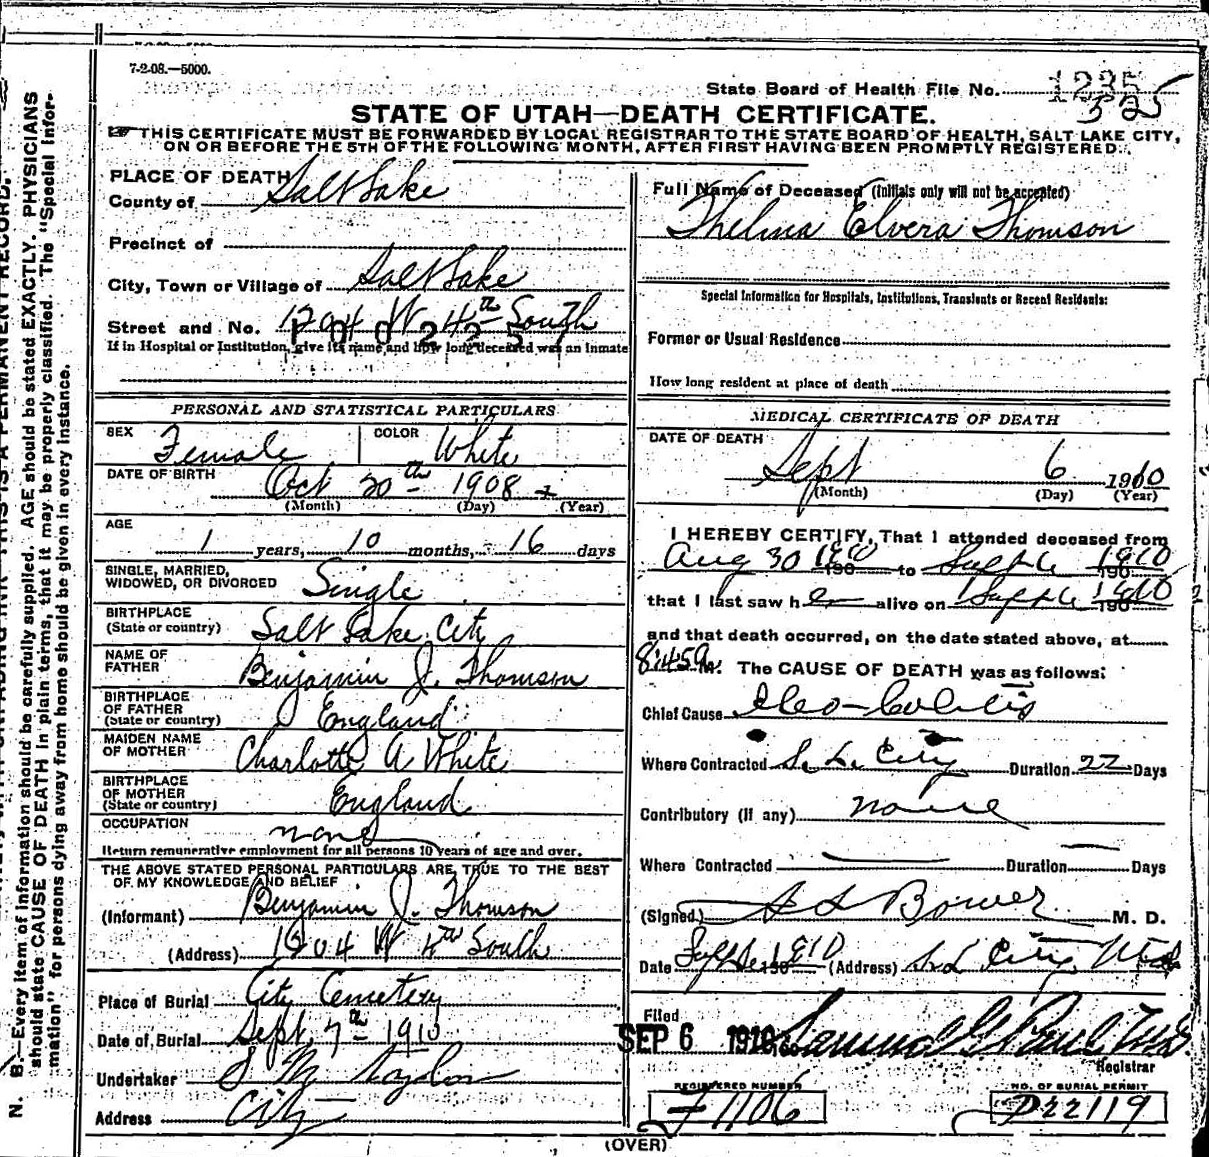 7-2-08.—5000.
State Board of Health File No. 1235
525
STATE OF UTAH—DEATH CERTIFICATE.
THIS CERTIFICATE MUST BE FORWARDED BY LOCAL REGISTRAR TO THE STATE BOARD OF HEALTH, SALT LAKE CITY,
ON OR BEFORE THE 5TH OF THE FOLLOWING MONTH, AFTER FIRST HAVING BEEN PROMPTLY REGISTERED.
PLACE OF DEATH
County of Salt Lake
Precinct of
City, Town or Village of Salt Lake
Street and No. 1204 W 4th South
If in Hospital or Institution, give its name and how long deceased was an inmate
PERSONAL AND STATISTICAL PARTICULARS
SEX Female COLOR White
DATE OF BIRTH Oct 20th 1908
(Month) (Day) (Year)
AGE
1 years, 10 months, 16 days
SINGLE, MARRIED,
WIDOWED, OR DIVORCED Single
BIRTHPLACE
(State or country) Salt Lake City
NAME OF
FATHER Benjamin J. Thomson
BIRTHPLACE
OF FATHER
(State or country) England
MAIDEN NAME
OF MOTHER Charlotte A White
BIRTHPLACE
OF MOTHER
(State or country) England
OCCUPATION none
Return remunerative employment for all persons 10 years of age and over.
THE ABOVE STATED PERSONAL PARTICULARS ARE TRUE TO THE BEST
OF MY KNOWLEDGE AND BELIEF
(Informant) Benjamin J. Thomson
(Address) 1204 W 4th South
Place of Burial City Cemetery
Date of Burial Sept. 7th 1910
Undertaker S M Taylor
Address City
Full Name of Deceased (Initials only will not be accepted)
Thelma Elvera Thomson
Special Information for Hospitals, Institutions, Transients or Recent Residents:
Former or Usual Residence
How long resident at place of death
MEDICAL CERTIFICATE OF DEATH
DATE OF DEATH
Sept 6 1910
(Month) (Day) (Year)
I HEREBY CERTIFY, That I attended deceased from
Aug 30 1910 to Sept 6 1910
that I last saw her alive on Sept 6 1910
and that death occurred, on the date stated above, at
8:45 a M. The CAUSE OF DEATH was as follows:
Chief Cause Ileo-Colitis
Where Contracted S. L. City Duration 22 Days
Contributory (if any) none
Where Contracted Duration Days
(Signed) Bower M. D.
Date Sept 6 1910 (Address) S. L. City, Utah
Filed
SEP 6 1910 Samuel G Paul M.D.
Registrar
REGISTERED NUMBER
F1106
NO. OF BURIAL PERMIT
D22119
(OVER)
N. B.—Every item of information should be carefully supplied. AGE should be stated EXACTLY. PHYSICIANS
should state CAUSE OF DEATH in plain terms, that it may be properly classified. The "Special Infor-
mation" for persons dying away from home should be given in every instance.